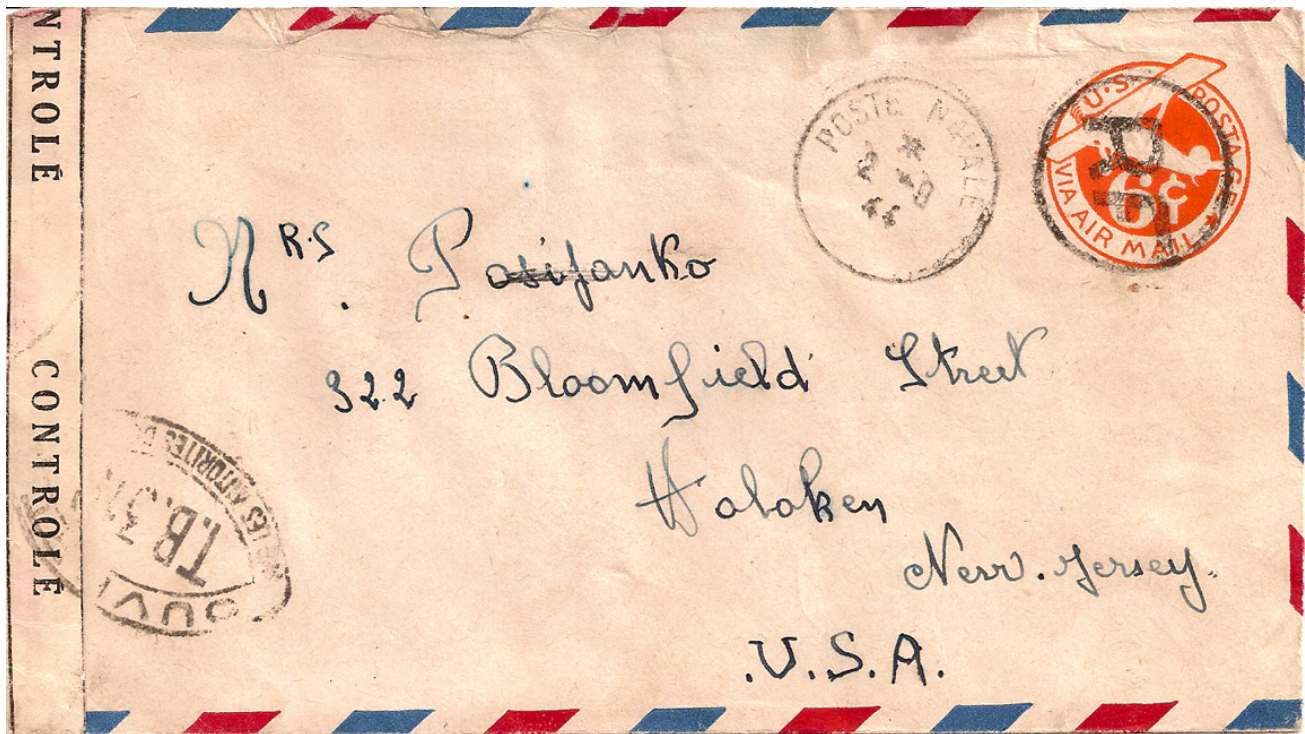 NTROLÉ
CONTROLÉ
POSTE NAVALE
2 -9
44
U.S. POSTAGE
6¢
VIA AIR MAIL
P.P.
Mrs. P
322 Bloomfield Street
Hoboken
New. Jersey.
.U.S.A.
OUV
T.B.
AUTORITÉS